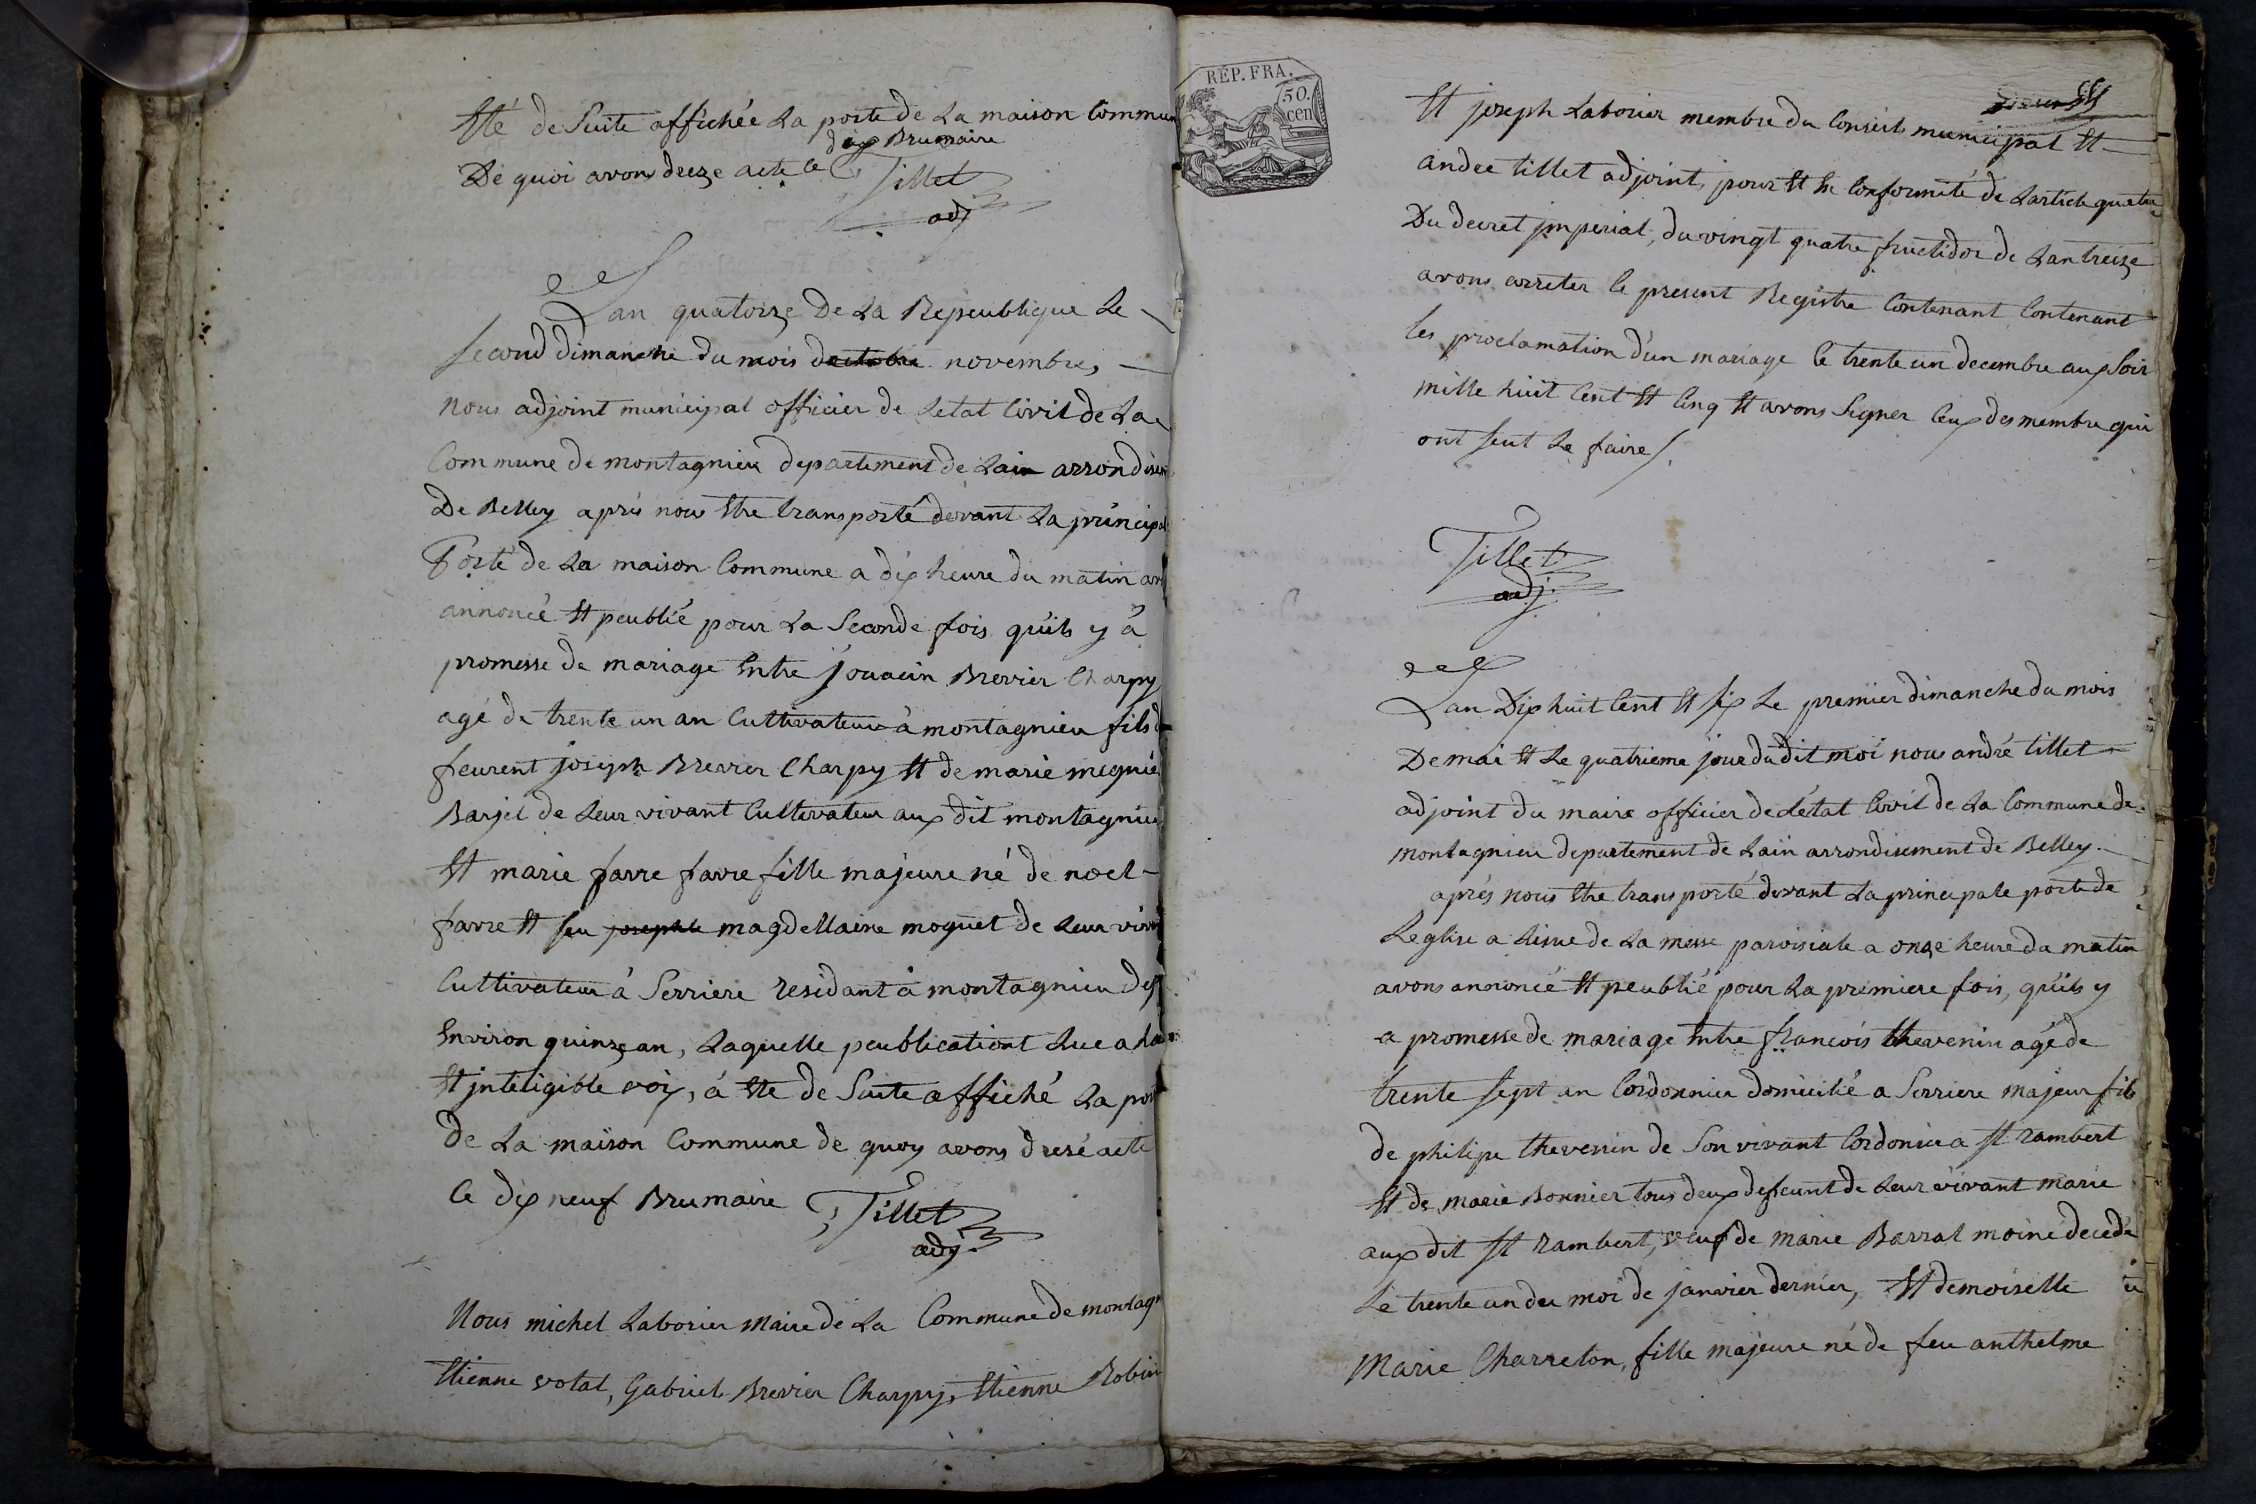 Eté de Suite affichée La porte de La maison Commun
dix Brumaire
De quoi avons dreze acte le Tillet
adj
Lan quatorze De La Repeublique Le
second dimanche du mois doctobre novembre,
nous adjoint municipal officier de Letat Civil de La
Commune de montagnieu departement de Lain arrondisem
De Belley aprés nous Etre transporté devant La principal
Porte de La maison Commune a dix heure du matin avo
annoncé Et peublié pour La Seconde fois quils y á
promesse de mariage Entre jouacin Brevier Charpy
agé de trente un an Cultivateur à montagnieu fils d
feurent joseph Brevier Charpy Et de marie megnie
Barjet de Leur vivant Cultivateur aux dit montagnieu
Et marie favre favre fille majeure né de noel
favre Et feu josephte magdellaine moquet de Leur viva
Cultivateur á Serriere residant á montagnieu des
Environ quinze an, Laquelle peublicationt Lue a ha
Et jnteligible voix, á Ete de Suite affiché La por
de La maison Commune de quoy avons dresé acte
le dix neuf Brumaire Tillet
adj.
Nous michel Laborier Maire de La Commune de montagn
Etienne votat, Gabriel Brevier Charpy, Etienne Robin
RÉP. FRA.
50.
cen
Et joseph Laborier membre du Conseils municipal Et
andre tillet adjoint, pour Et En Conformité de Larticle quatre
Du decret jmperial, du vingt quatre fructidor de Lan treize
avons arreter le present Registre Contenant Contenant
les proclamation d'un mariage le trente un decembre aux Soir
mille huit Cent Et Cinq Et avons Signer Ceux des membre qui
ont seut Le faire
Tillet
adj.
Lan Dix huit Cent Et six Le premier dimanche du mois
De mai Et Le quatrieme jour du dit moi nous andré tillet
adjoint du maire officier de Létat Civil de La Commune de
montagnieu departement de Lain arrondisement de Belley.
aprés nous Etre transporté devant La principale porte de
Leglise a Lisue de La messe paroisiale a onze heure du matin
avons annoncé Et peublié pour La premiere fois, quils y
a promesse de mariage Entre francois thevenin agé de
trente sept an Cordonnier domicilié a Serriere majeur fils
de philipe thevenin de Son vivant Cordonier a St rambert
Et de marie Bonnier tous deux defeunt de Leur vivant marié
aux dit St rambert, veuf de marie Barral moiné decedé
Le trente un du moi de janvier dernier, Et demoiselle
Marie Charreton, fille majeure né de feu anthelme